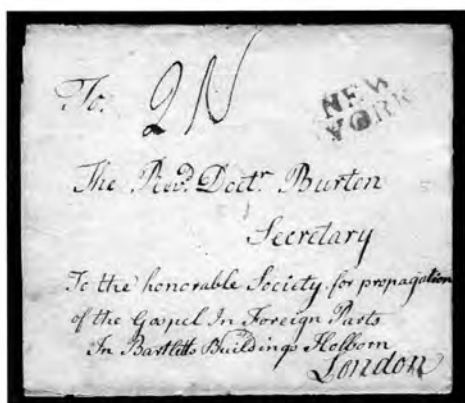 To. 2N
NEW
YORK
The Revd. Doctr. Burton
Secretary
To the honorable Society for propagation
of the Gospel In Foreign Parts
In Bartletts Buildings Holborn
London